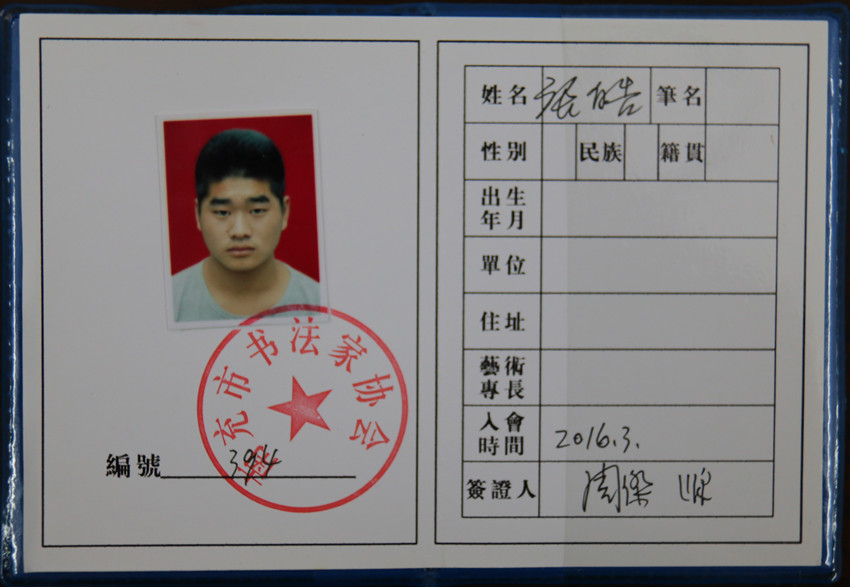 南充市书法家协会
編號 394
姓名 张皓 筆名
性别 民族 籍貫
出生
年月
單位
住址
藝術
專長
入會
時間 2016.3.
簽證人